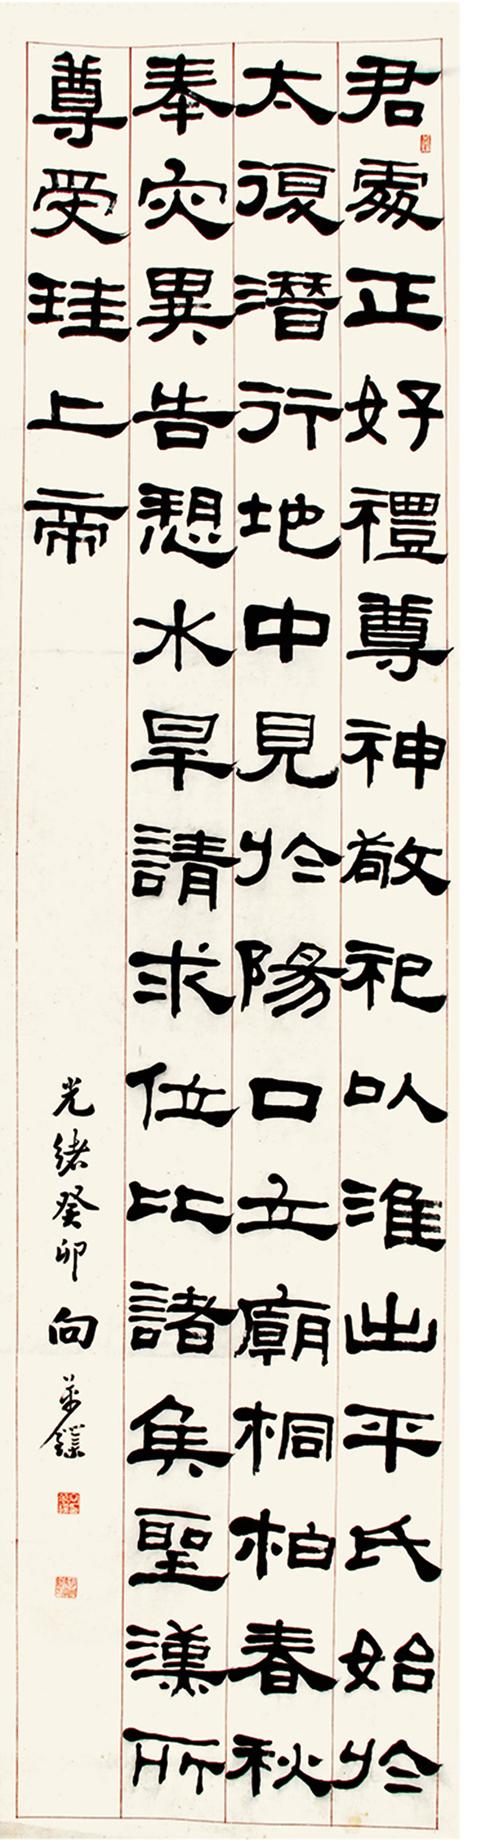 君處正好禮尊神敬祀以淮出平氏始於
太復潛行地中見於陽口立廟桐柏春秋
奉灾異告愬水旱請求位比諸矦聖漢所
尊受珪上帝
光緒癸卯向萬鑅